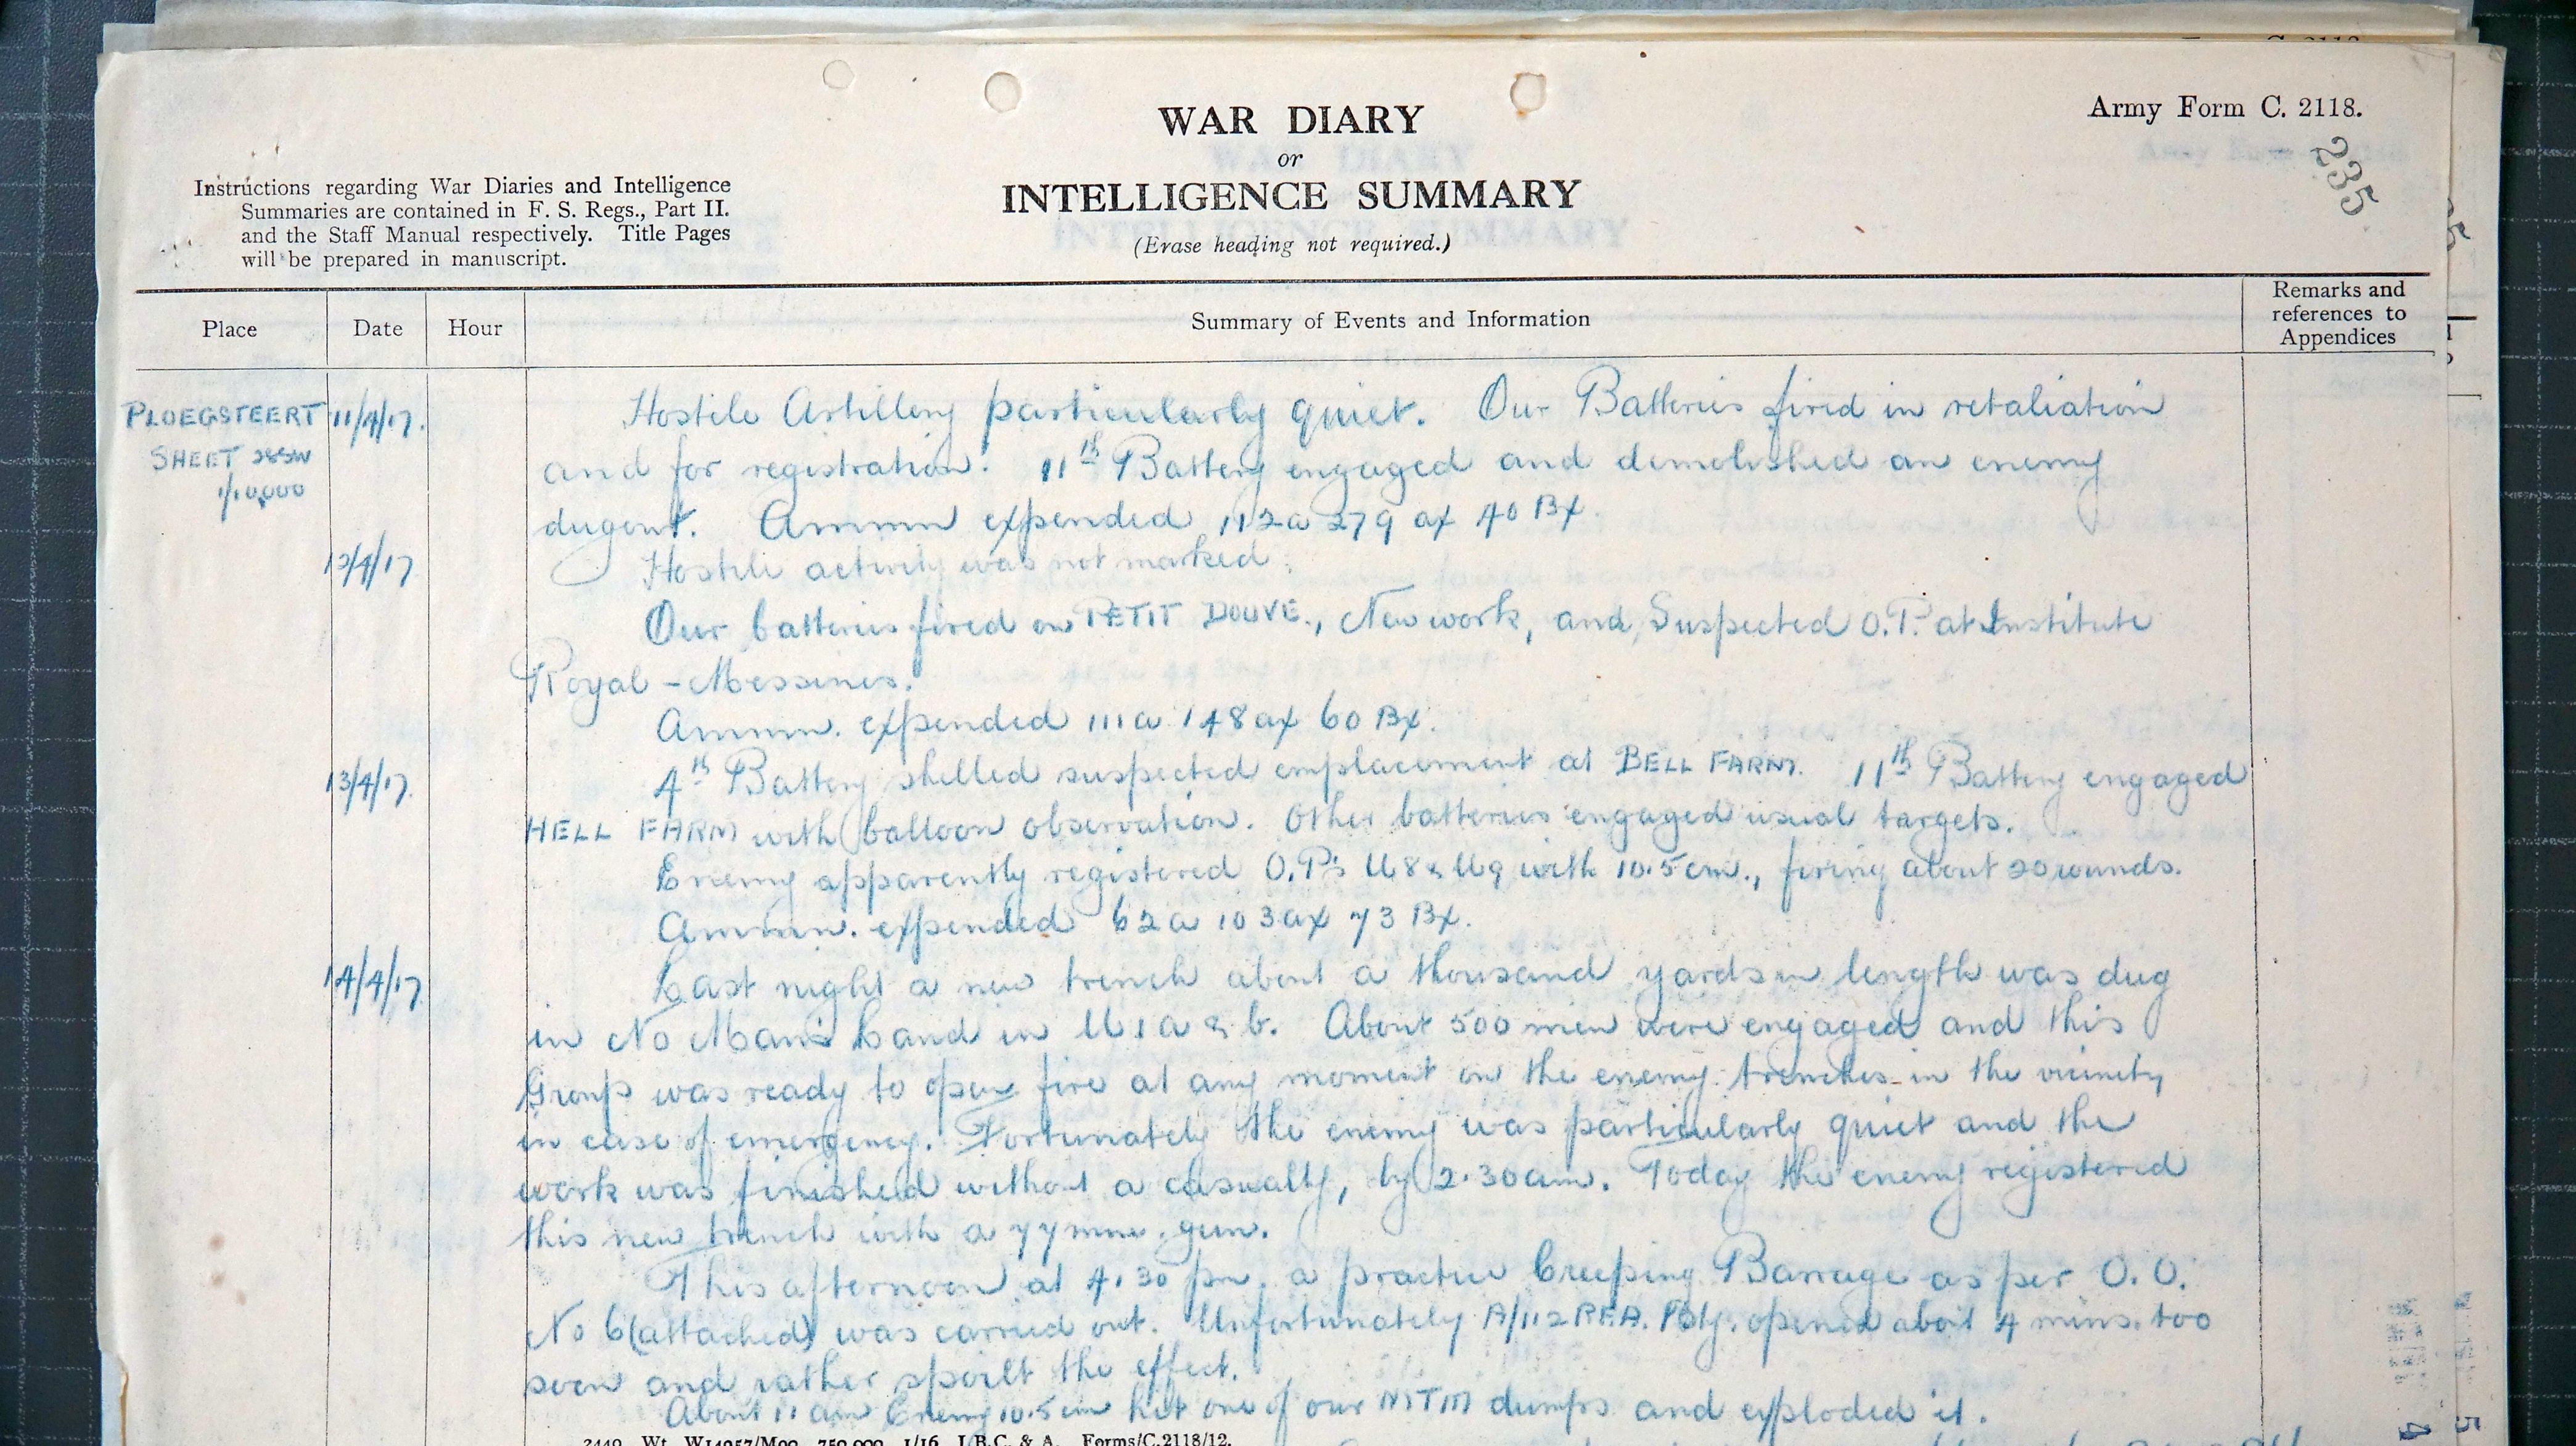 Army Form C. 2118.
WAR DIARY
or
INTELLIGENCE SUMMARY
(Erase heading not required.)
235
Instructions regarding War Diaries and Intelligence
Summaries are contained in F. S. Regs., Part II.
and the Staff Manual respectively. Title Pages
will be prepared in manuscript.
Place Date Hour Summary of Events and Information Remarks and references to Appendices
PLOEGSTEERT 11/4/17. Hostile Artillery particularly quiet. Our Batteries fired in retaliation
SHEET 28SW and for registration. 11th Battery engaged and demolished an enemy
1/10,000
dugout. Ammn expended 112a 279 ax 40 Bx.
12/4/17 Hostile activity was not marked.
Our batteries fired on PETIT DOUVE., New work, and Suspected O.P. at Institute
Royal - Messines.
Ammn. expended 111a 148 ax 60 Bx.
13/4/17. 4th Battery shelled suspected emplacement at BELL FARM. 11th Battery engaged
HELL FARM with balloon observation. Other batteries engaged usual targets.
Enemy apparently registered O.P's U8 & U9 with 10.5 cm., firing about 20 rounds.
Ammn. expended 62a 103ax 73 Bx.
14/4/17 Last night a new trench about a thousand yards in length was dug
in No Man's Land in U1a & b. About 500 men were engaged and this
Group was ready to open fire at any moment on the enemy trenches in the vicinity
in case of emergency. Fortunately the enemy was particularly quiet and the
work was finished without a casualty, by 2.30am. Today the enemy registered
this new trench with a 77mm. gun.
This afternoon at 4.30 pm. a practice Creeping Barrage as per O.O.
No 6 (attached) was carried out. Unfortunately A/112 RFA. Bty. opened about 4 mins. too
soon and rather spoilt the effect.
About 11 am Enemy 10.5 cm hit one of our MTM dumps and exploded it.
2449 Wt. W14957/M90 750,000 1/16 J.B.C. & A. Forms/C.2118/12.